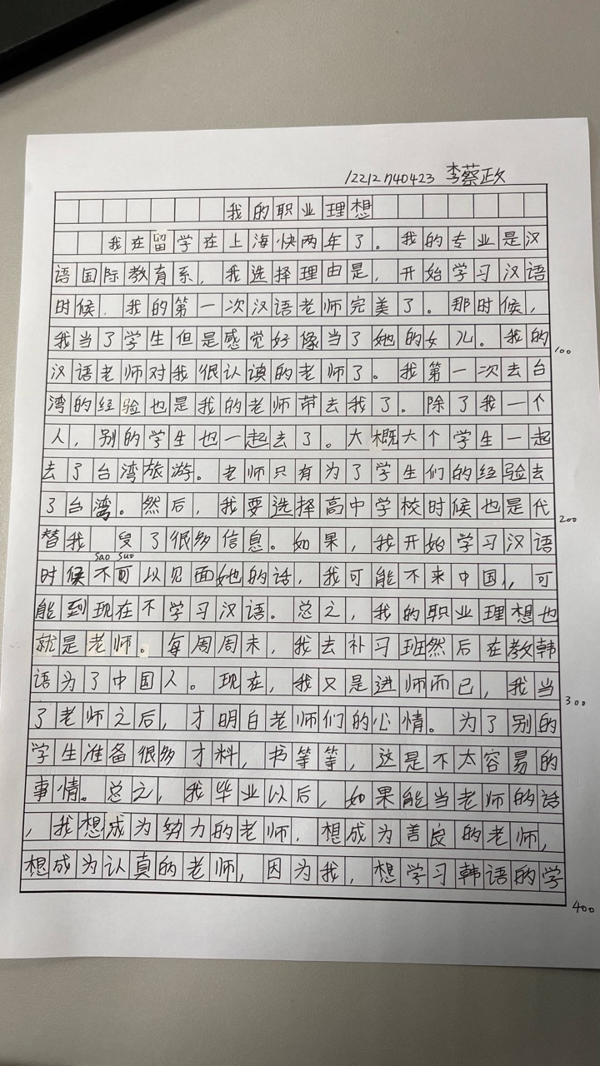 12212740423 李蔡政
我的职业理想
我在留学在上海快两年了。我的专业是汉
语国际教育系，我选择理由是，开始学习汉语
时候，我的第一次汉语老师完美了。那时候，
我当了学生但是感觉好像当了她的女儿。我的
100
汉语老师对我很认真的老师了。我第一次去台
湾的经验也是我的老师带去我了。除了我一个
人，别的学生也一起去了。大概大个学生一起
去了台湾旅游。老师只有为了学生们的经验去
了台湾。然后，我要选择高中学校时候也是代
200
替我 了很多信息。如果，我开始学习汉语
sao suo
时候不可以见面她的话，我可能不来中国，可
能到现在不学习汉语。总之，我的职业理想也
就是老师。每周周末，我去补习班然后在教韩
语为了中国人。现在，我又是进师而已，我当
300
了老师之后，才明白老师们的心情。为了别的
学生准备很多才料，书等等，这是不太容易的
事情。总之，我毕业以后，如果能当老师的话
，我想成为努力的老师．想成为善良的老师，
想成为认真的老师，因为我，想学习韩语的学
400